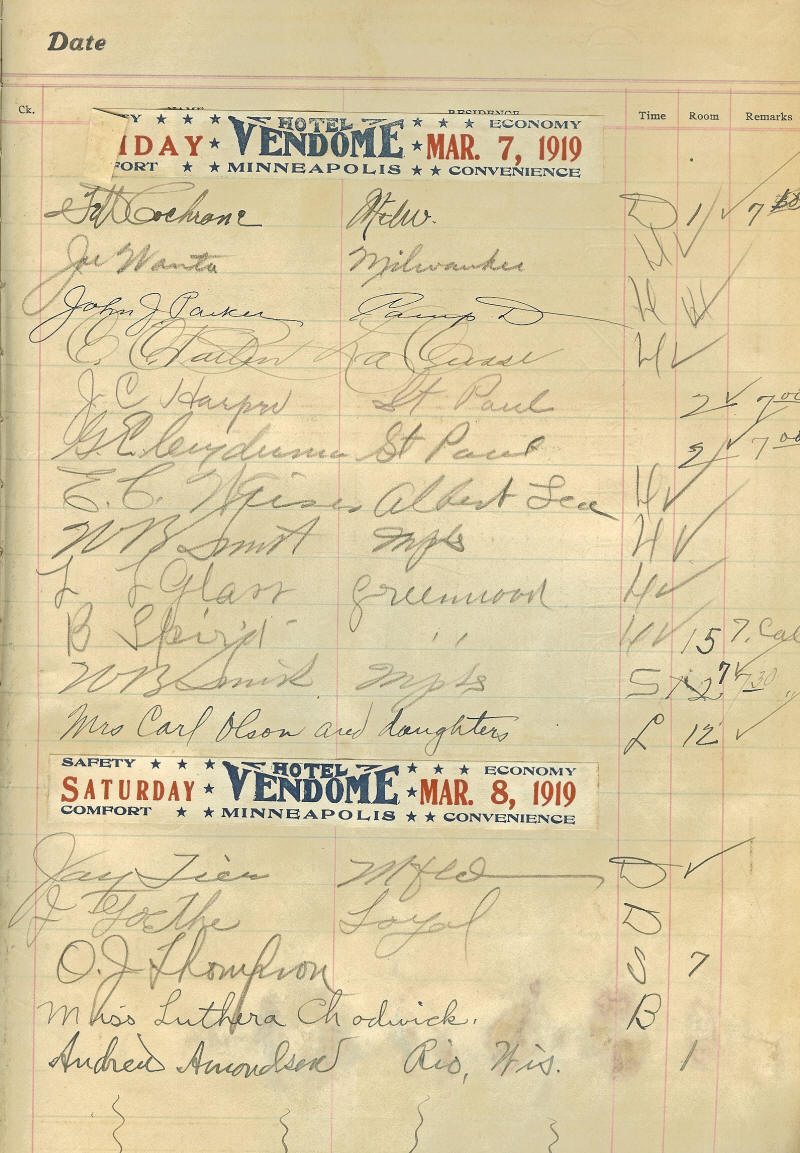 Date
Ck. NAME RESIDENCE Time Room Remarks
HOTEL ★ ★ ★ ECONOMY
IDAY ★ VENDOME ★ MAR. 7, 1919
FORT ★ ★ MINNEAPOLIS ★ ★ CONVENIENCE
Cochrane Milw. D 1 ✓ 7
Joe Wanta Milwaukee H ✓
John J Parker Camp D H
La Crosse H ✓
J. C Harper St. Paul 2 ✓ 7.00
G. E. St Paul 2 ✓ 7.00
E. C. Albert Lea H ✓
W B Smith Mpls H ✓
L L Glass Greenwood H ✓
B " H ✓ 15 7.
W B Smith Mpls S 7 ✓ 7.30
Mrs Carl Olson and daughters L 12 ✓
SAFETY ★ ★ ★ HOTEL ★ ★ ★ ECONOMY
SATURDAY ★ VENDOME ★ MAR. 8, 1919
COMFORT ★ ★ MINNEAPOLIS ★ ★ CONVENIENCE
Jay Tier D ✓
J Goethe Loyal D
O. J Thompson S 7
Miss Luthera Chadwick. B
Andrew Amondson Rio, Wis. 1